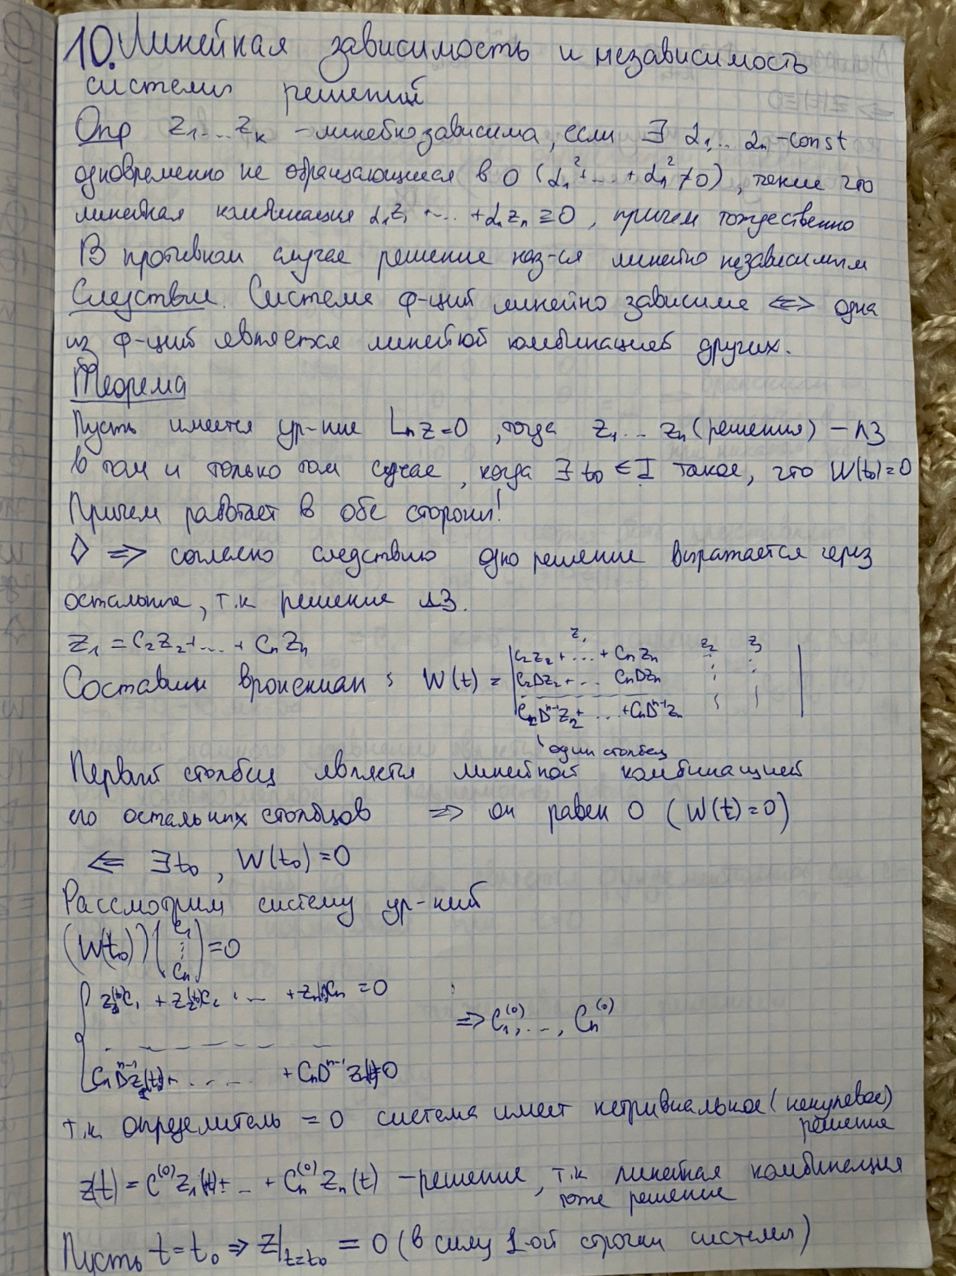 10. Линейная зависимость и независимость
системы решений
Опр z₁...zₖ - линейно зависима, если ∃ α₁,.. αₙ - const
одновременно не обращающиеся в 0 (α₁²+... + αₙ² ≠ 0), такие что
линейная комбинация α₁z₁ +... + αₙzₙ ≡ 0, причем тождественно
В противном случае решение наз-ся линейно независимым
Следствие. Система ф-ций линейно зависима <=> одна
из ф-ций является линейной комбинацией других.
Теорема
Пусть имеется ур-ние Lₙz=0, тогда z₁... zₙ (решения) - ЛЗ
в том и только том случае, когда ∃ t₀ ∈ I такое, что W(t₀)=0
Причем работает в обе стороны!
◊ => согласно следствию одно решение выражается через
остальные, т.к решение ЛЗ.
z₁ = C₂z₂+... + Cₙzₙ
z₁ z₂ z₃
Составим вронскиан: W(t) = | C₂z₂+... + Cₙzₙ
C₂Dz₂+... CₙDzₙ
C₂Dⁿ⁻¹z₂+ ...+CₙDⁿ⁻¹zₙ |
один столбец
Первый столбец является линейной комбинацией
его остальных столбцов => он равен 0 (W(t)=0)
<= ∃t₀, W(t₀)=0
Рассмотрим систему ур-ний
(W(t₀)) (C₁ ⋮ Cₙ) = 0
{ z₁(t₀)C₁ + z₂(t₀)C₂ + ... + zₙ(t₀)Cₙ = 0
=> C₁⁽⁰⁾,..., Cₙ⁽⁰⁾
C₁Dⁿ⁻¹z₁(t₀)+ ..... + CₙDⁿ⁻¹zₙ(t₀)=0
т.к. определитель = 0 система имеет нетривиальное (ненулевое)
решение
z(t) = C⁽⁰⁾z₁(t)+ ... + Cₙ⁽⁰⁾zₙ(t) - решение, т.к линейная комбинация
тоже решение
Пусть t=t₀ => z|ₜ₌ₜ₀ = 0 (в силу 1-ой строчки системы)